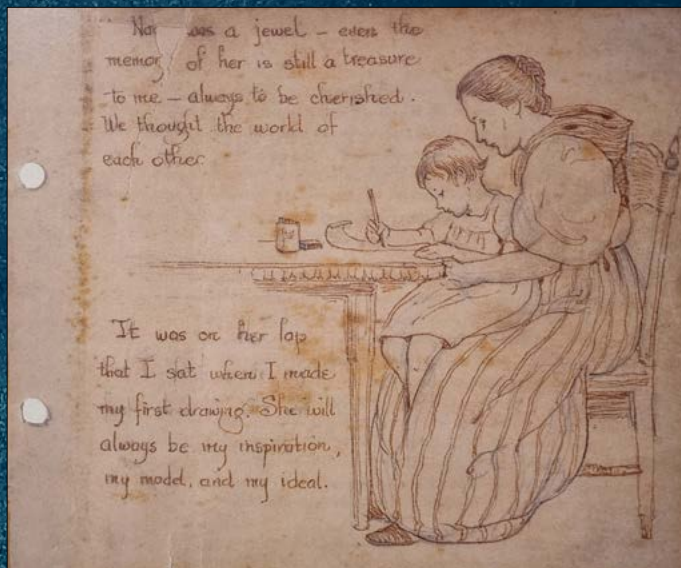 was a jewel – even the
of her is still a treasure
to me – always to be cherished.
We thought the world of
each other
It was on her lap
that I sat when I made
my first drawing. She will
always be my inspiration,
my model, and my ideal.